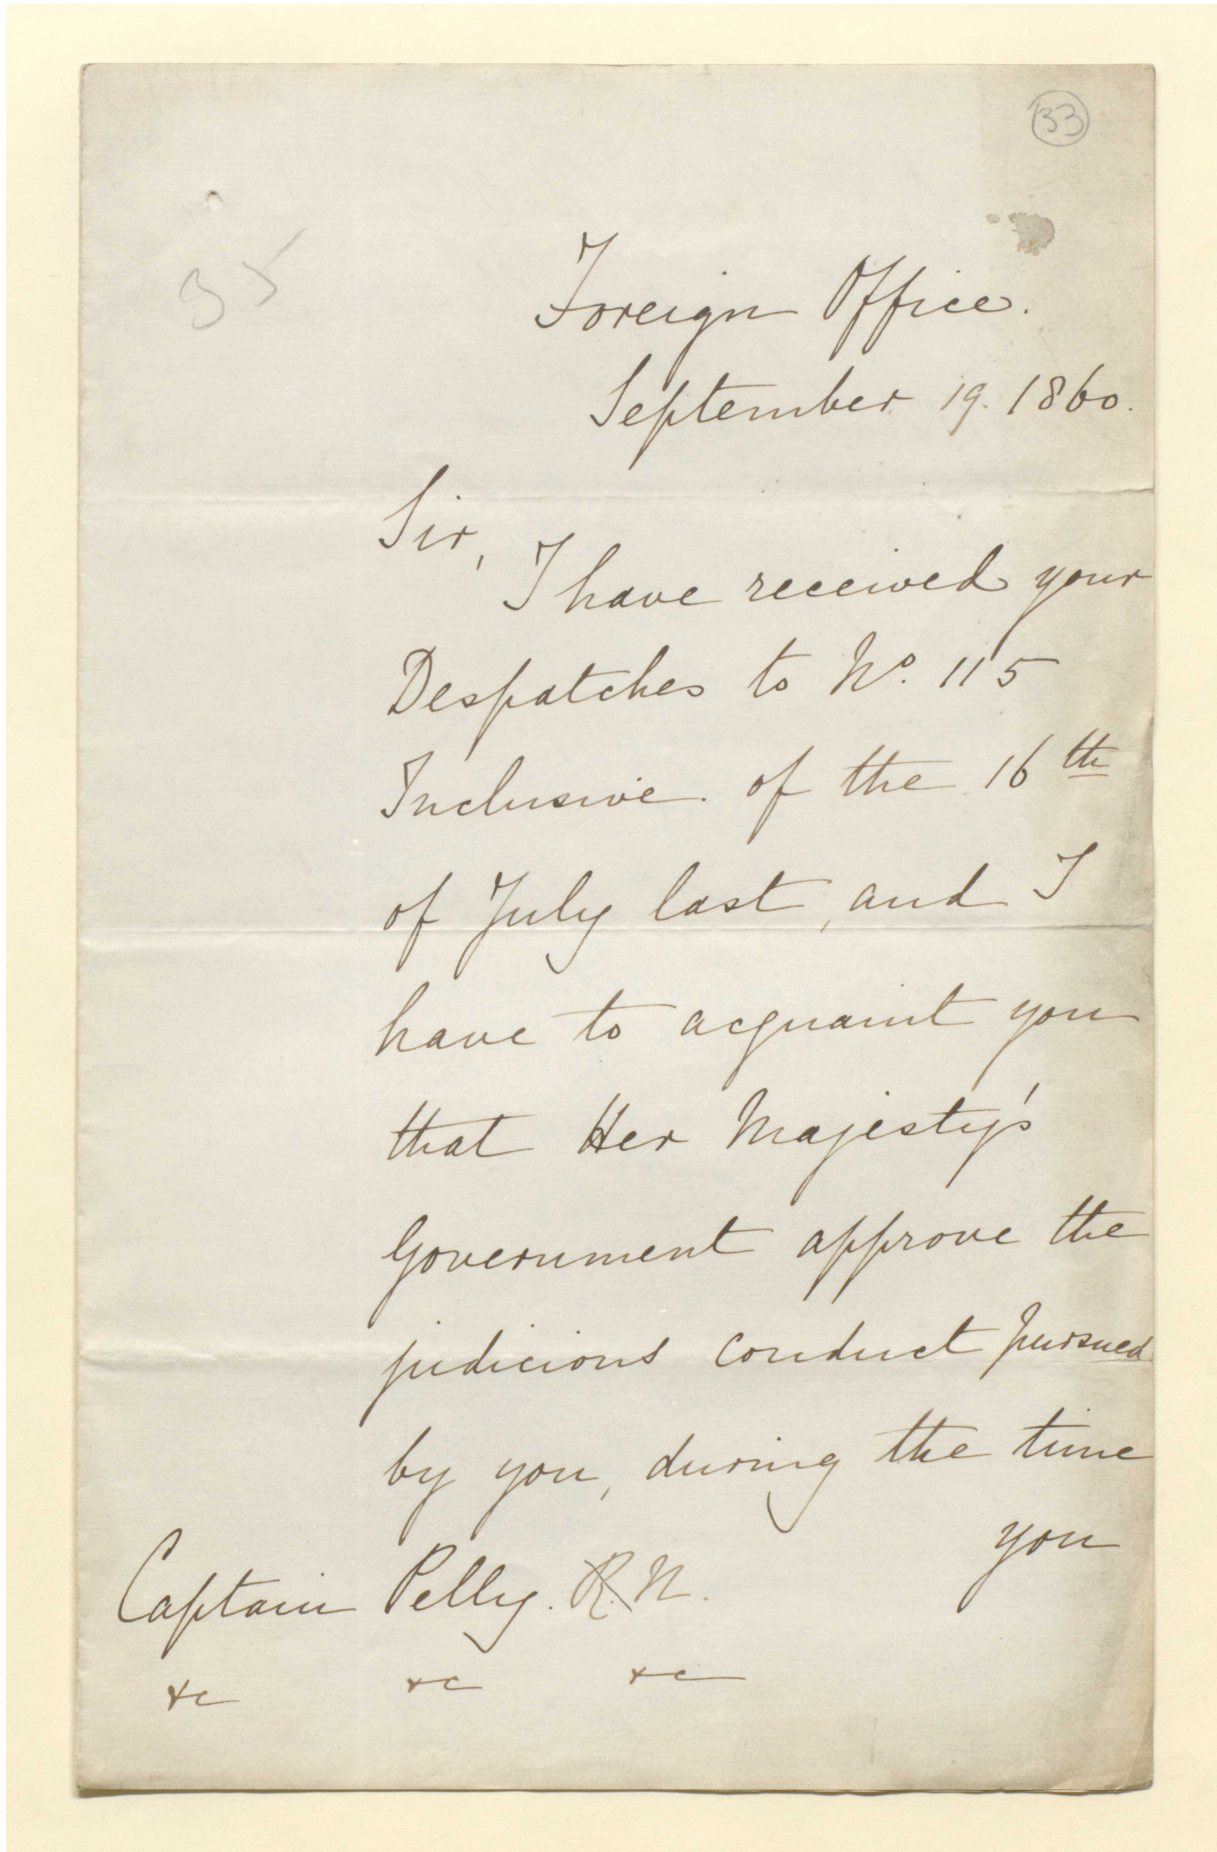 33
35
Foreign Office.
September 19. 1860.
Sir,
I have received your
Despatches to No. 115
Inclusive. of the 16th
of July last, and I
have to acquaint you
that Her Majesty's
Government approve the
judicious conduct pursued
by you, during the time
you
Captain Pelly. R.N.
&c &c &c